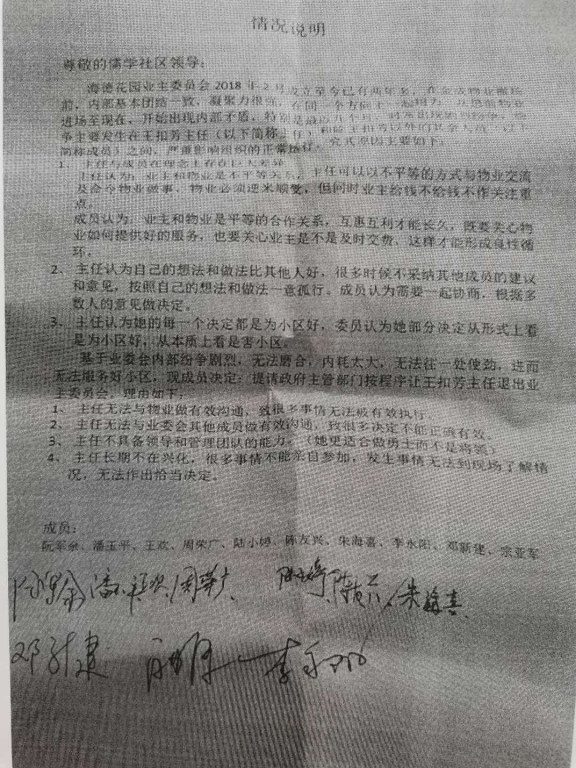 情况说明
尊敬的儒学社区领导：
海德花园业主委员会 2018 年 2 月成立至今已有两年多，
前，内部基本团结一致，凝聚力很强，在同一个方向上一起用力
进场至现在，开始出现内部矛盾，特别是最近几个月
争主要发生在王扣芳主任（以下简称主任）和除王扣芳以外的其余人员（以下
简称成员）之间，严重影响组织的正常运行。究其原因主要如下：
1、 主任与成员在理念上存在巨大差异
主任认为：业主和物业是不平等关系，主任可以以不平等的方式与物业交流
及命令物业做事，物业必须逆来顺受，但同时业主给钱不给钱不作关注重
点。
成员认为：业主和物业是平等的合作关系，互惠互利才能长久，既要关心物
业如何提供好的服务，也要关心业主是不是及时交费，这样才能形成良性循
环。
2、 主任认为自己的想法和做法比其他人好，很多时候不采纳其他成员的建议
和意见，按照自己的想法和做法一意孤行。成员认为需要一起协商，根据多
数人的意见做决定。
3、 主任认为她的每一个决定都是为小区好，委员认为她部分决定从形式上看
是为小区好，从本质上看是害小区。
基于业委会内部纷争剧烈，无法磨合，内耗太大，无法往一处使劲，进而
无法服务好小区，现成员决定：提请政府主管部门按程序让王扣芳主任退出业
主委员会，理由如下：
1、 主任无法与物业做有效沟通，致很多事情无法被有效执行。
2、 主任无法与业委会其他成员做有效沟通，致很多决定不能正确有效。
3、 主任不具备领导和管理团队的能力。（她更适合做勇士而不是将领）
4、 主任长期不在兴化，很多事情不能亲自参加，发生事情无法到现场了解情
况，无法作出恰当决定。
成员：
阮军余、潘玉平、王欢、周荣广、陆小婷、陈友兴、朱海喜、李永阳、邓新建、宗亚军
周荣广 朱海喜
邓新建 李永阳